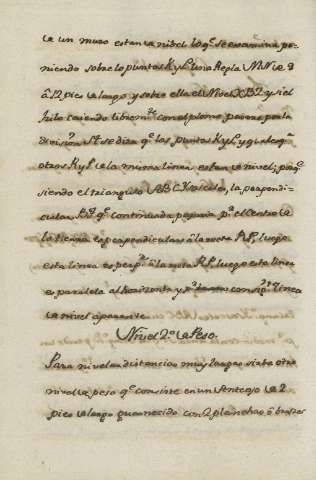 de un muro estan de nibel lo q.e se examina po-
niendo sobre los puntos K y L una Regla MN de
à 12 pies de largo y sobre ella el Nivel XBZ y si el
hilo caiendo librem.te con el plomo pasare por la
division se dira q.e los puntos K y L y qualesq.a
otros K y L de la misma linea estan de nivel; porq.e
siendo el triangulo ABC Ysosceles, la perpendi-
cular q.e continuada pasaria p.r el Centro de
la tierra es perpendicular à la recta RP, luego
esta linea es perp.r à la recta RP, luego esta linea
es paralela al horizonte y consig.te linea
de nivel aparente.
Nivel 2.o de Peso.
Para nivelar distancias muy largas sirve otro
nivel de peso q.e consiste en un Anteojo de 2
pies de largo guarnecido con 2 planchas ò brazos